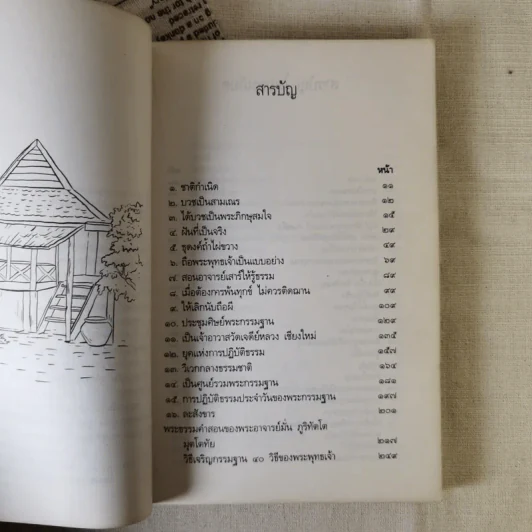 สารบัญ
หน้า
๑. ชาติกำเนิด ๑๑
๒. บวชเป็นสามเณร ๑๒
๓. ได้บวชเป็นพระภิกษุสมใจ ๑๕
๔. ฝันที่เป็นจริง ๒๙
๕. ธุดงค์ถ้ำไผ่ขวาง ๔๙
๖. ถือพระพุทธเจ้าเป็นแบบอย่าง ๖๙
๗. สอนอาจารย์เสาร์ให้รู้ธรรม ๘๙
๘. เมื่อต้องการพ้นทุกข์ ไม่ควรติดฌาน ๙๙
๙. ให้เลิกนับถือผี ๑๐๙
๑๐. ประชุมศิษย์พระกรรมฐาน ๑๒๙
๑๑. เป็นเจ้าอาวาสวัดเจดีย์หลวง เชียงใหม่ ๑๓๕
๑๒. ยุคแห่งการปฏิบัติธรรม ๑๕๗
๑๓. วิเวกกลางธรรมชาติ ๑๖๔
๑๔. เป็นศูนย์รวมพระกรรมฐาน ๑๘๑
๑๕. การปฏิบัติธรรมประจำวันของพระกรรมฐาน ๑๙๗
๑๑. ละสังขาร ๒๐๑
พระธรรมคำสอนของพระอาจารย์มั่น ภูริทัตโต
มุตโตทัย ๒๑๗
วิธีเจริญกรรมฐาน ๔๐ วิธีของพระพุทธเจ้า ๒๔๙